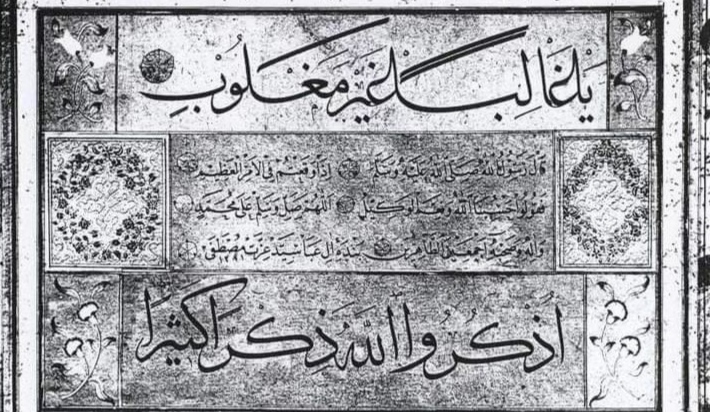 يا غالبا غير مغلوب
قال رسول الله صلى الله عليه وسلم اذا وقعتم في الامر العظيم
فقولوا حسبنا الله ونعم الوكيل اللهم صل وسلم على محمد
واله وصحبه اجمعين الطاهرين بنده ال عبا سيد عزت مصطفى
اُذكُرُوا اللّٰهَ ذِكرًا كَثيرًا